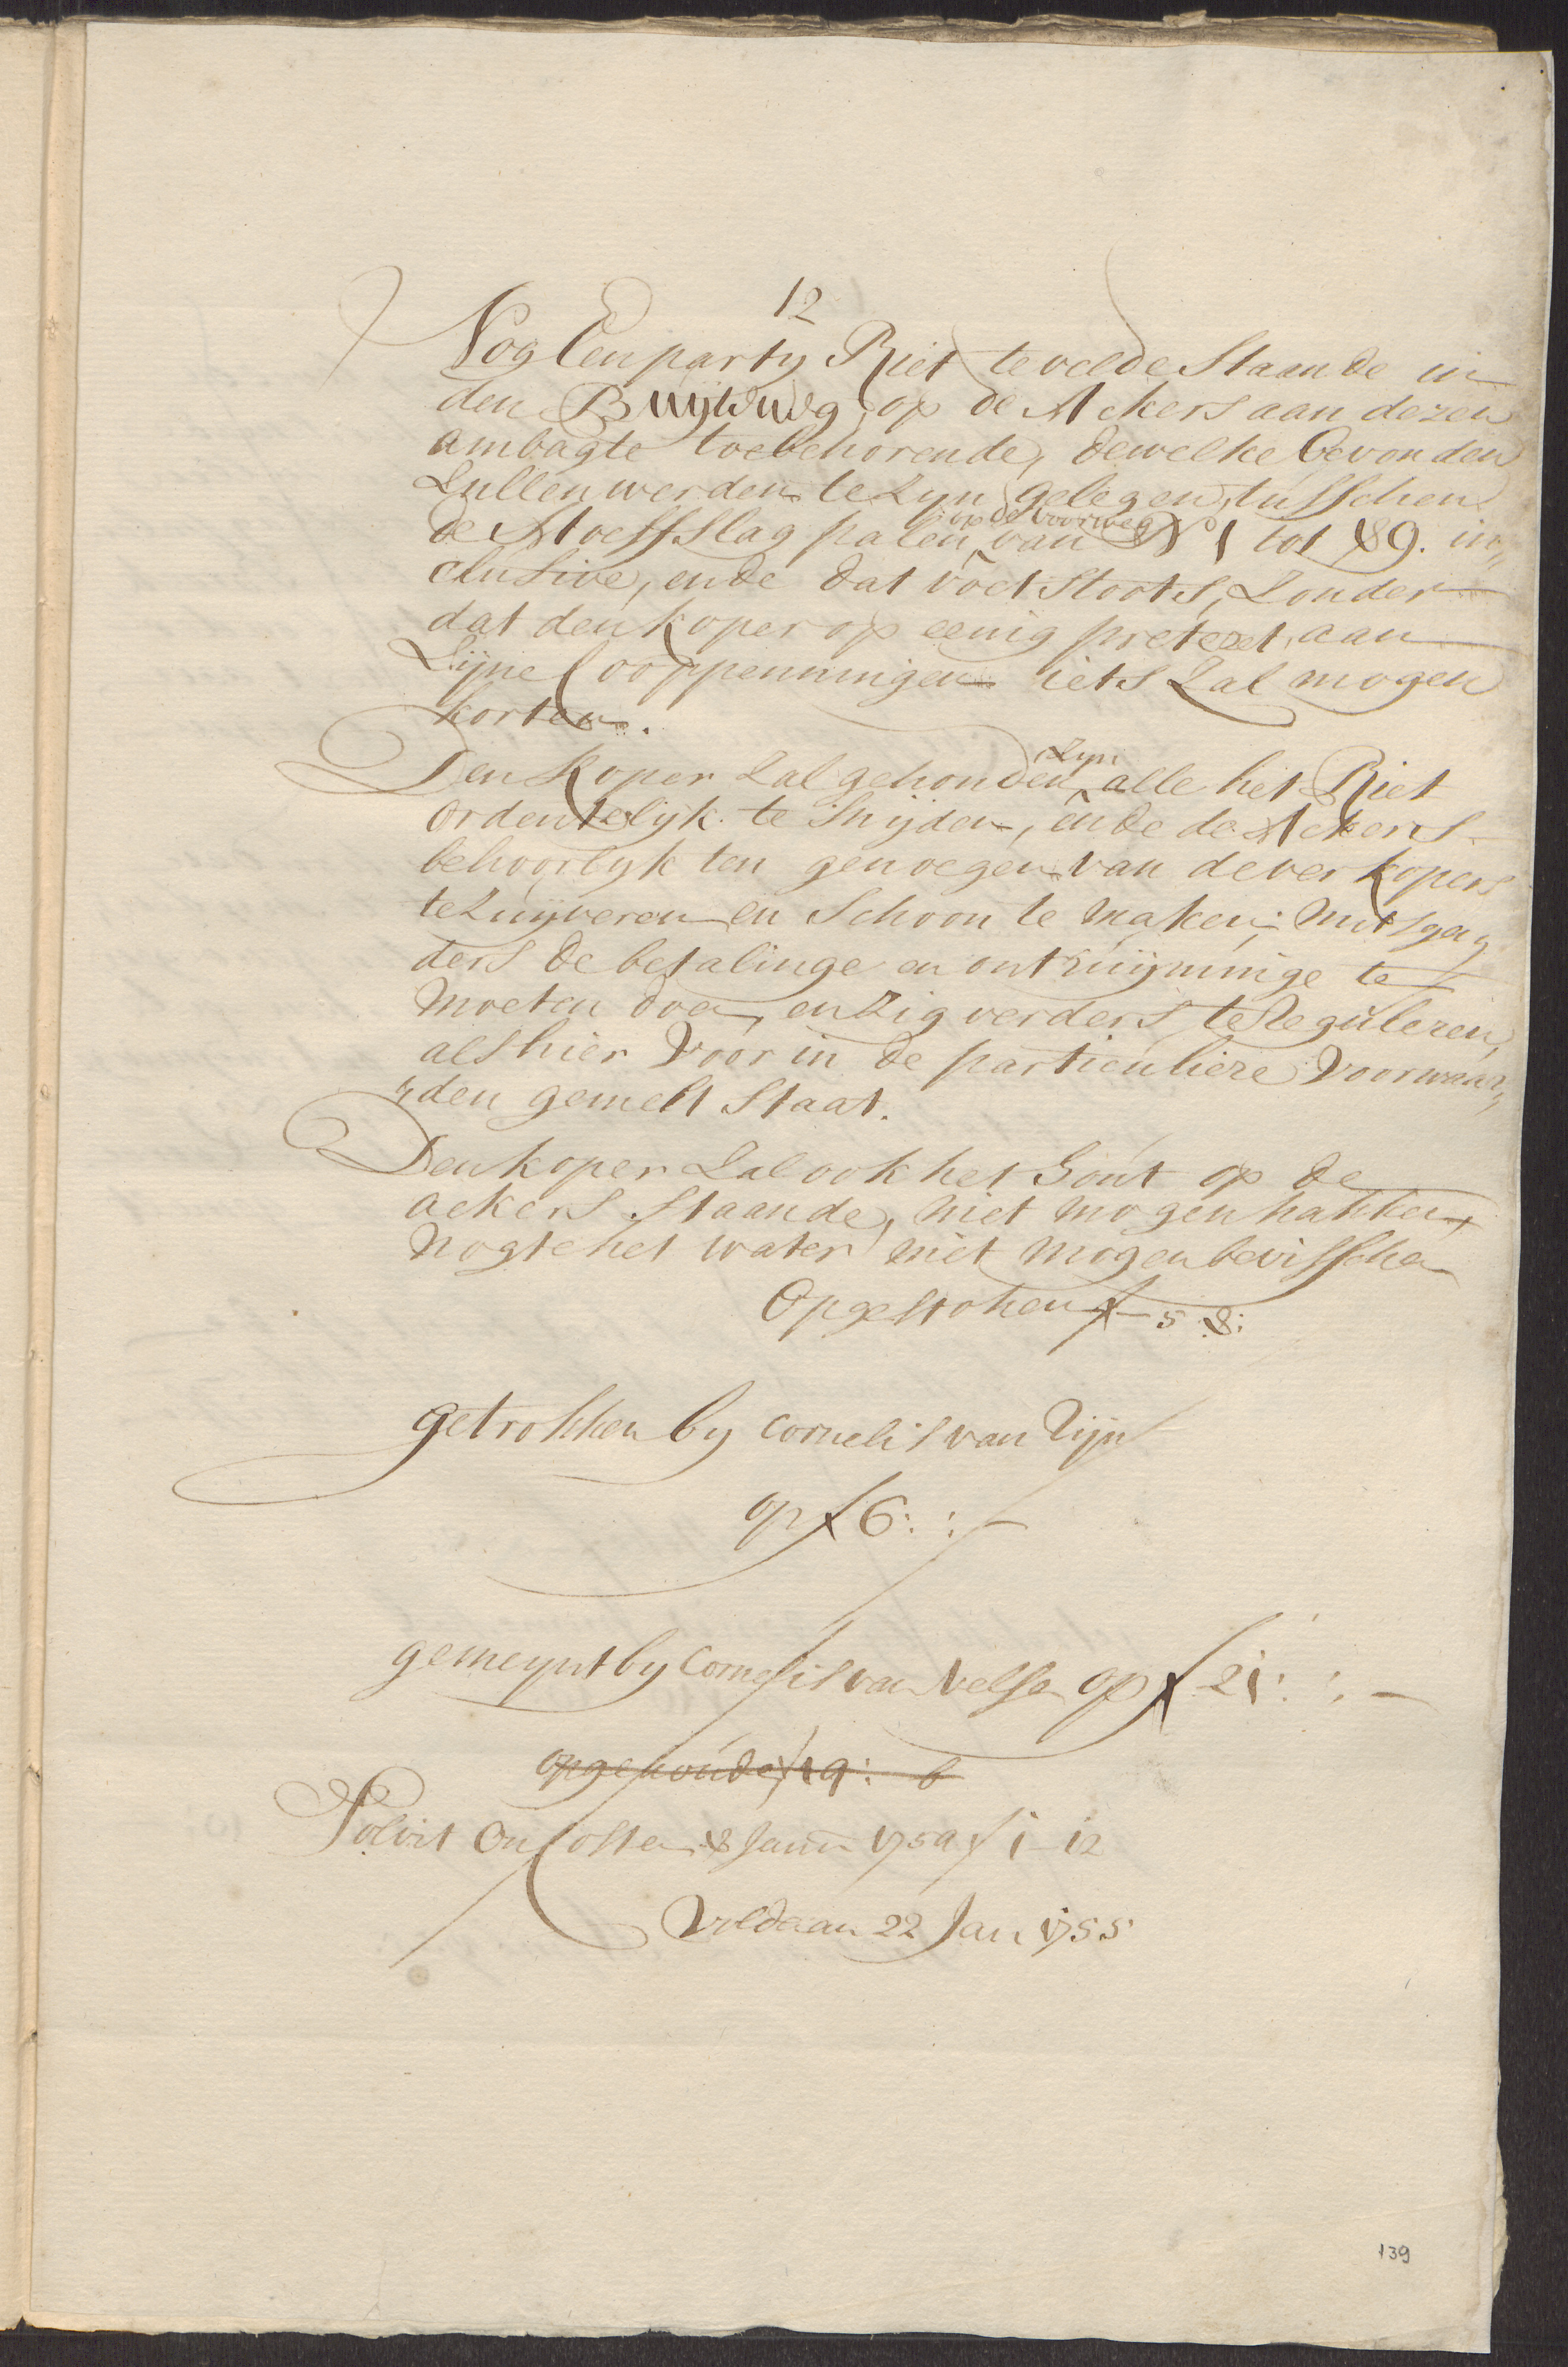 12
Nog Een party Riet te velde Staande in
den Buijtweg, op de Ackers aan dezen
ambagte toebehorende, dewelke bevonden
Zullen werden te zyn gelegen, tusschen
op de voorweg
de Hoeffslag palen van No 1 tot 89. in„
clusive, ende dat voetstoots, Zonder
dat den Koper op eenig pretext, aan
Zijne Cooppenningen iets Zal mogen
korten.
zyn
Den Koper Zal gehouden alle het Riet
ordentelyk te Snijden, ende de Ackers
behoorlyk ten genoegen van de verkopers
te Zuijveren en Schoon te maken; mitsga„
ders de betalinge en ontruijminge te
moeten doen, en Zig verders te Reguleren,
als hier voor in de particuliere voorwaar„
„den gemelt Staat.
Den koper Zal ook het Hout op de
ackers Staande, niet mogen hakken,
nogte het water niet mogen bevisschen
Opgestoken f - 5 8:
getrokken by Cornelis van Zijn
op f 6: : -
gemeynt by Cornelis van Velse op f 21: : -
opgehoude f 19: 6
Solvit On Coste 8 Janu 1754 f 1 - 12
Voldaan 22 Jan 1755
139